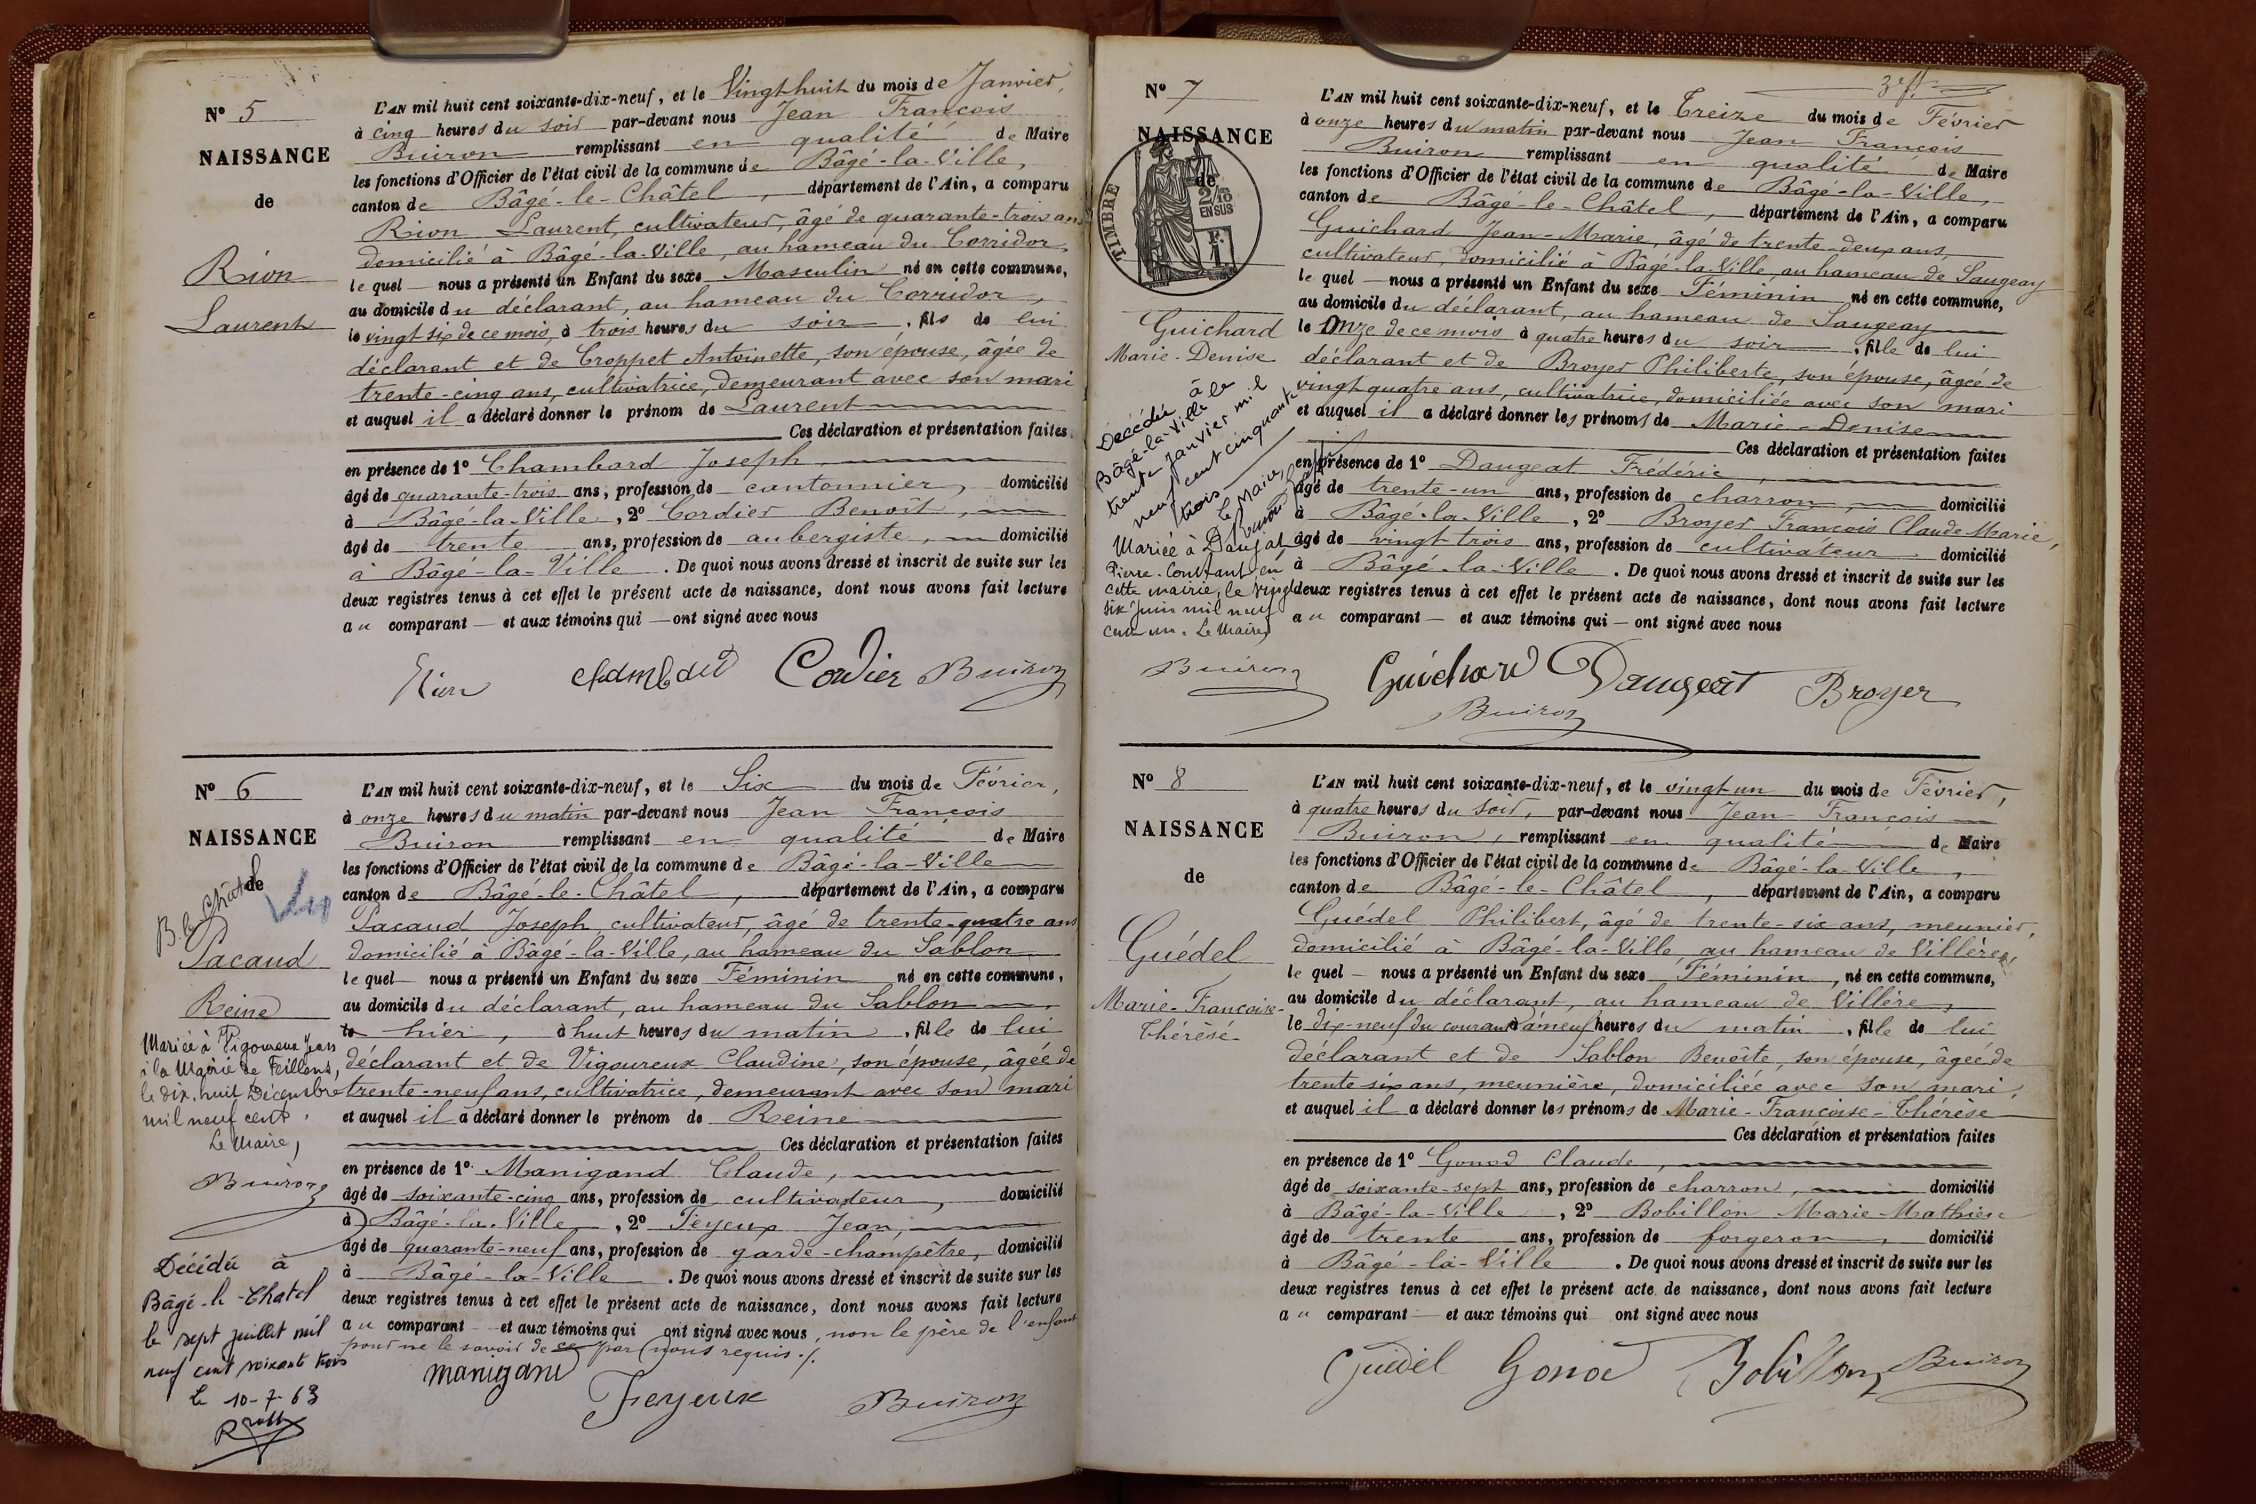 N° 5
NAISSANCE
de
Rion
Laurent
L'AN mil huit cent soixante-dix-neuf, et le Vingt huit du mois de Janvier,
à cinq heures du soir par-devant nous Jean François
Buiron remplissant en qualité de Maire
les fonctions d'Officier de l'état civil de la commune de Bâgé-la-Ville,
canton de Bâgé-le-Châtel, département de l'Ain, a comparu
Rion Laurent, cultivateur, âgé de quarante-trois ans
domicilié à Bâgé-la-Ville, au hameau du Corridor,
lequel nous a présenté un Enfant du sexe Masculin né en cette commune,
au domicile du déclarant, au hameau du Corridor,
le vingt six de ce mois, à trois heures du soir, fils de lui
déclarant et de Croppet Antoinette, son épouse, âgée de
trente-cinq ans, cultivatrice, demeurant avec son mari
et auquel il a déclaré donner le prénom de Laurent
Ces déclaration et présentation faites
en présence de 1° Chambard Joseph,
âgé de quarante-trois ans, profession de cantonnier, domicilié
à Bâgé-la-Ville, 2° Cordier Benoît,
âgé de trente ans, profession de aubergiste, domicilié
à Bâgé-la-Ville. De quoi nous avons dressé et inscrit de suite sur les
deux registres tenus à cet effet le présent acte de naissance, dont nous avons fait lecture
au comparant et aux témoins qui ont signé avec nous
Rion Chambard Cordier Buiron
N° 6
NAISSANCE
de
B. le Châtel
Vu
Pacaud
Reine
Mariée à Vigoureux Jean
à la Mairie de Feillens,
le dix-huit Décembre
mil neuf cent.
Le Maire,
Buiron
Décédée à
Bâgé-le-Chatel
le sept juillet mil
neuf cent soixante trois
le 10-7-63
L'AN mil huit cent soixante-dix-neuf, et le Six du mois de Février,
à onze heures du matin par-devant nous Jean François
Buiron remplissant en qualité de Maire
les fonctions d'Officier de l'état civil de la commune de Bâgé-la-Ville
canton de Bâgé-le-Châtel, département de l'Ain, a comparu
Pacaud Joseph, cultivateur, âgé de trente-quatre ans
domicilié à Bâgé-la-Ville, au hameau du Sablon
lequel nous a présenté un Enfant du sexe Féminin né en cette commune,
au domicile du déclarant, au hameau du Sablon,
le hier, à huit heures du matin, fille de lui
déclarant et de Vigoureux Claudine, son épouse, âgée de
trente-neuf ans, cultivatrice, demeurant avec son mari
et auquel il a déclaré donner le prénom de Reine
Ces déclaration et présentation faites
en présence de 1° Manigand Claude,
âgé de soixante-cinq ans, profession de cultivateur, domicilié
à Bâgé-la-Ville, 2° Feyeux Jean,
âgé de quarante-neuf ans, profession de garde-champêtre, domicilié
à Bâgé-la-Ville. De quoi nous avons dressé et inscrit de suite sur les
deux registres tenus à cet effet le présent acte de naissance, dont nous avons fait lecture
au comparant et aux témoins qui ont signé avec nous, non le père de l'enfant
pour ne le savoir de ce par nous requis./.
Manigand
Feyeux Buiron
N° 7
NAISSANCE
de
TIMBRE
2/10
EN SUS
Guichard
Marie-Denise
Décédée à
Bâgé-la-Ville le
trente janvier mil
neuf cent cinquante
trois
Le Maire,
Mariée à Daujat
Pierre-Constant en
cette mairie, le vingt
six juin mil neuf
cent un. Le Maire,
Buiron
L'AN mil huit cent soixante-dix-neuf, et le Treize du mois de Février
à onze heures du matin par-devant nous Jean François
Buiron remplissant en qualité de Maire
les fonctions d'Officier de l'état civil de la commune de Bâgé-la-Ville,
canton de Bâgé-le-Châtel, département de l'Ain, a comparu
Guichard Jean-Marie, âgé de trente-deux ans,
cultivateur, domicilié à Bâgé-la-Ville, au hameau de Saugeay
lequel nous a présenté un Enfant du sexe Féminin né en cette commune,
au domicile du déclarant, au hameau de Saugeay
le Onze de ce mois à quatre heures du soir, fille de lui
déclarant et de Broyer Philiberte, son épouse, âgée de
vingt quatre ans, cultivatrice, domiciliée avec son mari
et auquel il a déclaré donner les prénoms de Marie-Denise
Ces déclaration et présentation faites
en présence de 1° Daugeat Frédéric,
âgé de trente-un ans, profession de charron, domicilié
à Bâgé-la-Ville, 2° Broyer François Claude Marie,
âgé de vingt-trois ans, profession de cultivateur domicilié
à Bâgé-la-Ville. De quoi nous avons dressé et inscrit de suite sur les
deux registres tenus à cet effet le présent acte de naissance, dont nous avons fait lecture
au comparant et aux témoins qui ont signé avec nous
Guichard Daugeat Broyer
Buiron
N° 8
NAISSANCE
de
Guédel
Marie-Françoise-
Thérèse
L'AN mil huit cent soixante-dix-neuf, et le vingt un du mois de Février,
à quatre heures du soir, par-devant nous Jean-François
Buiron, remplissant en qualité de Maire
les fonctions d'Officier de l'état civil de la commune de Bâgé-la-Ville,
canton de Bâgé-le-Châtel, département de l'Ain, a comparu
Guédel Philibert, âgé de trente-six ans, meunier,
domicilié à Bâgé-la-Ville au hameau de Villère,
lequel nous a présenté un Enfant du sexe Féminin, né en cette commune,
au domicile du déclarant, au hameau de Villère,
le dix-neuf du courant à neuf heures du matin, fille de lui
déclarant et de Sablon Benoîte, son épouse, âgée de
trente six ans, meunière, domiciliée avec son mari,
et auquel il a déclaré donner les prénoms de Marie-Françoise-Thérèse
Ces déclaration et présentation faites
en présence de 1° Gonod Claude,
âgé de soixante-sept ans, profession de charron, domicilié
à Bâgé-la-Ville, 2° Bobillon Marie-Mathieu
âgé de trente ans, profession de forgeron, domicilié
à Bâgé-la-Ville. De quoi nous avons dressé et inscrit de suite sur les
deux registres tenus à cet effet le présent acte de naissance, dont nous avons fait lecture
au comparant et aux témoins qui ont signé avec nous
Guédel Gonod Bobillon Buiron